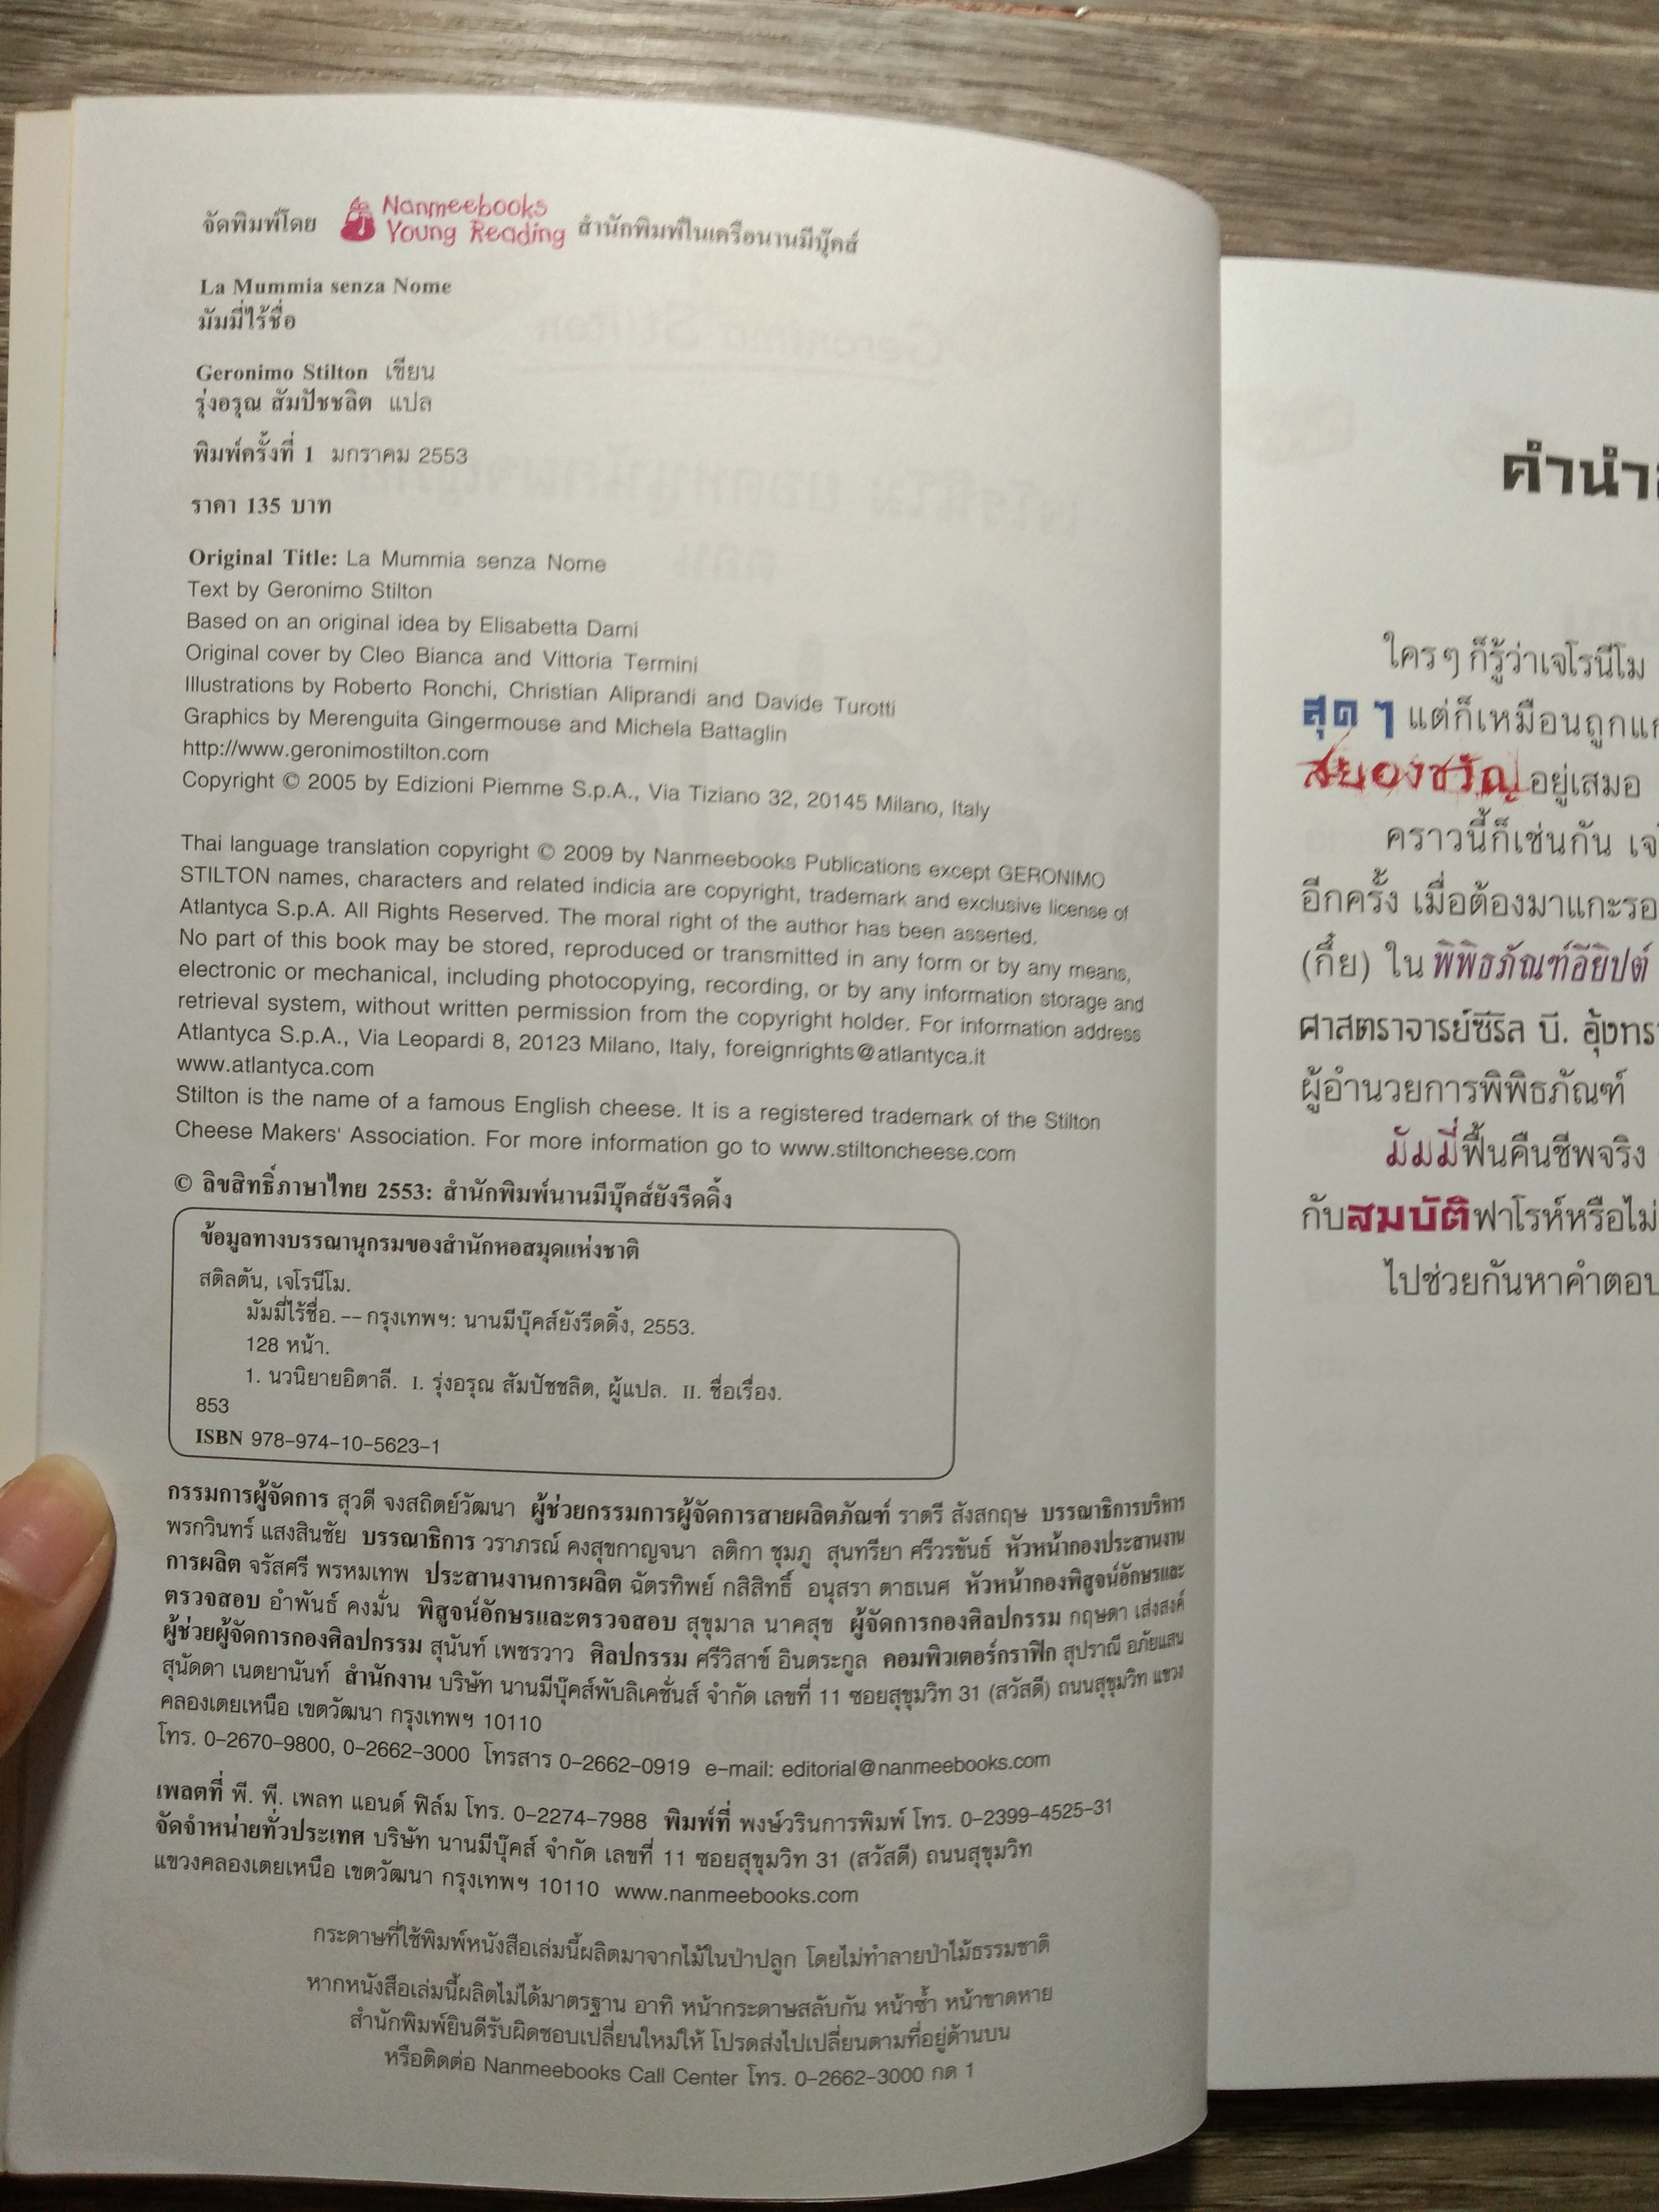 จัดพิมพ์โดย Nanmeebooks Young Reading สำนักพิมพ์ในเครือนานมีบุ๊คส์
La Mummia senza Nome
มัมมี่ไร้ชื่อ
Geronimo Stilton เขียน
รุ่งอรุณ สัมปัชชลิต แปล
พิมพ์ครั้งที่ 1 มกราคม 2553
ราคา 135 บาท
Original Title: La Mummia senza Nome
Text by Geronimo Stilton
Based on an original idea by Elisabetta Dami
Original cover by Cleo Bianca and Vittoria Termini
Illustrations by Roberto Ronchi, Christian Aliprandi and Davide Turotti
Graphics by Merenguita Gingermouse and Michela Battaglin
http://www.geronimostilton.com
Copyright © 2005 by Edizioni Piemme S.p.A., Via Tiziano 32, 20145 Milano, Italy
Thai language translation copyright © 2009 by Nanmeebooks Publications except GERONIMO
STILTON names, characters and related indicia are copyright, trademark and exclusive license of
Atlantyca S.p.A. All Rights Reserved. The moral right of the author has been asserted.
No part of this book may be stored, reproduced or transmitted in any form or by any means,
electronic or mechanical, including photocopying, recording, or by any information storage and
retrieval system, without written permission from the copyright holder. For information address
Atlantyca S.p.A., Via Leopardi 8, 20123 Milano, Italy, foreignrights@atlantyca.it
www.atlantyca.com
Stilton is the name of a famous English cheese. It is a registered trademark of the Stilton
Cheese Makers' Association. For more information go to www.stiltoncheese.com
© ลิขสิทธิ์ภาษาไทย 2553: สำนักพิมพ์นานมีบุ๊คส์ยังรีดดิ้ง
ข้อมูลทางบรรณานุกรมของสำนักหอสมุดแห่งชาติ
สติลตัน, เจโรนีโม.
มัมมี่ไร้ชื่อ. -- กรุงเทพฯ: นานมีบุ๊คส์ยังรีดดิ้ง, 2553.
128 หน้า.
1. นวนิยายอิตาลี. I. รุ่งอรุณ สัมปัชชลิต, ผู้แปล. II. ชื่อเรื่อง.
853
ISBN 978-974-10-5623-1
กรรมการผู้จัดการ สุวดี จงสถิตย์วัฒนา ผู้ช่วยกรรมการผู้จัดการสายผลิตภัณฑ์ ราตรี สังสกฤษ บรรณาธิการบริหาร
พรกวินทร์ แสงสินชัย บรรณาธิการ วราภรณ์ คงสุขกาญจนา ลติกา ชุมภู สุนทรียา ศรีวรขันธ์ หัวหน้ากองประสานงาน
การผลิต จรัสศรี พรหมเทพ ประสานงานการผลิต ฉัตรทิพย์ กสิสิทธิ์ อนุสรา ตาธเนศ หัวหน้ากองพิสูจน์อักษรและ
ตรวจสอบ อำพันธ์ คงมั่น พิสูจน์อักษรและตรวจสอบ สุขุมาล นาคสุข ผู้จัดการกองศิลปกรรม กฤษดา เส่งสงค์
ผู้ช่วยผู้จัดการกองศิลปกรรม สุนันท์ เพชรวาว ศิลปกรรม ศรีวิสาข์ อินตระกูล คอมพิวเตอร์กราฟิก สุปราณี อภัยแสน
สุนัดดา เนตยานันท์ สำนักงาน บริษัท นานมีบุ๊คส์พับลิเคชั่นส์ จำกัด เลขที่ 11 ซอยสุขุมวิท 31 (สวัสดี) ถนนสุขุมวิท แขวง
คลองเตยเหนือ เขตวัฒนา กรุงเทพฯ 10110
โทร. 0-2670-9800, 0-2662-3000 โทรสาร 0-2662-0919 e-mail: editorial@nanmeebooks.com
เพลตที่ พี. พี. เพลท แอนด์ ฟิล์ม โทร. 0-2274-7988 พิมพ์ที่ พงษ์วรินการพิมพ์ โทร. 0-2399-4525-31
จัดจำหน่ายทั่วประเทศ บริษัท นานมีบุ๊คส์ จำกัด เลขที่ 11 ซอยสุขุมวิท 31 (สวัสดี) ถนนสุขุมวิท
แขวงคลองเตยเหนือ เขตวัฒนา กรุงเทพฯ 10110 www.nanmeebooks.com
กระดาษที่ใช้พิมพ์หนังสือเล่มนี้ผลิตมาจากไม้ในป่าปลูก โดยไม่ทำลายป่าไม้ธรรมชาติ
หากหนังสือเล่มนี้ผลิตไม่ได้มาตรฐาน อาทิ หน้ากระดาษสลับกัน หน้าซ้ำ หน้าขาดหาย
สำนักพิมพ์ยินดีรับผิดชอบเปลี่ยนใหม่ให้ โปรดส่งไปเปลี่ยนตามที่อยู่ด้านบน
หรือติดต่อ Nanmeebooks Call Center โทร. 0-2662-3000 กด 1
คำนำ
ใครๆ ก็รู้ว่าเจโรนีโม
สุด ๆ แต่ก็เหมือนถูกแก
สยองขวัญ อยู่เสมอ
คราวนี้ก็เช่นกัน เจ
อีกครั้ง เมื่อต้องมาแกะรอ
(กึ๋ย) ใน พิพิธภัณฑ์อียิปต์
ศาสตราจารย์ซีริล บี. อุ้งทร
ผู้อำนวยการพิพิธภัณฑ์
มัมมี่ฟื้นคืนชีพจริง
กับสมบัติฟาโรห์หรือไม่
ไปช่วยกันหาคำตอบ